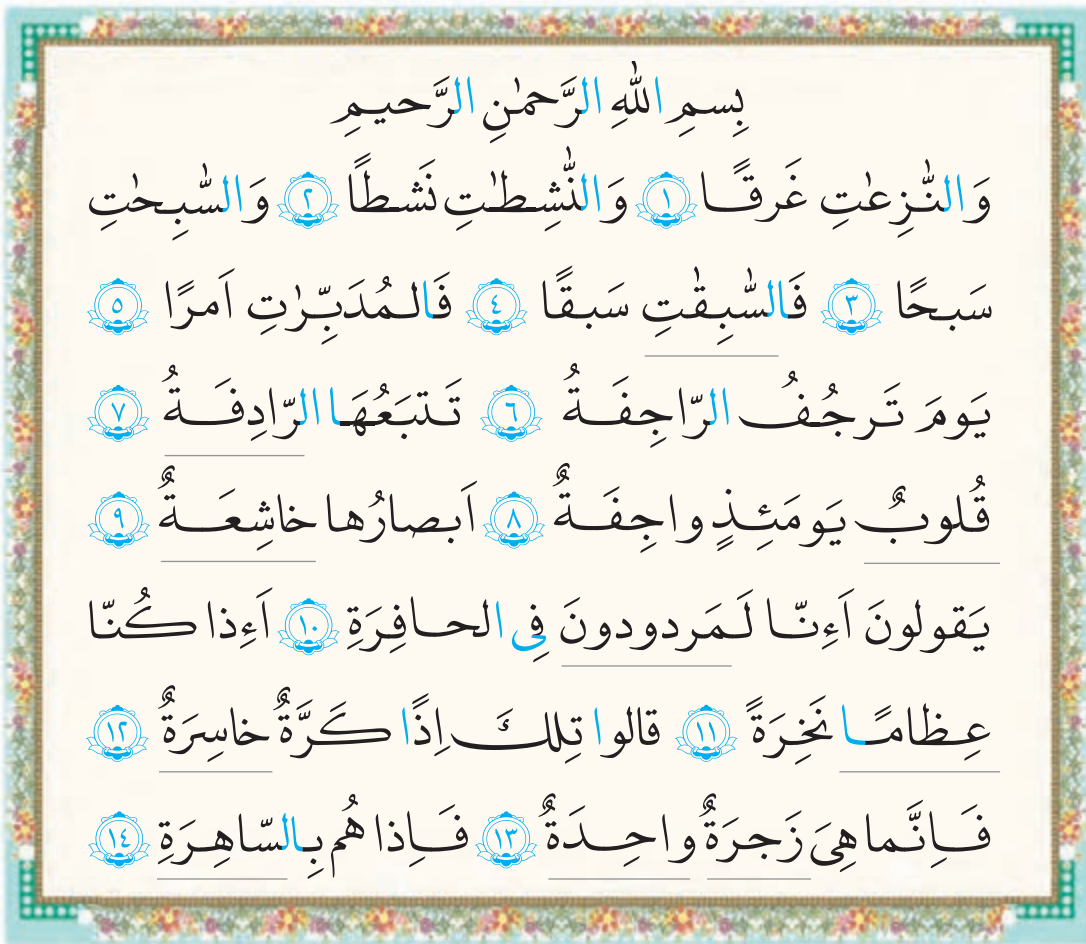 بِسمِ اللّٰهِ الرَّحمٰنِ الرَّحیمِ
وَالنّٰزِعٰتِ غَرقًا ١ وَالنّٰشِطٰتِ نَشطًا ٢ وَالسّٰبِحٰتِ
سَبحًا ٣ فَالسّٰبِقٰتِ سَبقًا ٤ فَالمُدَبِّرٰتِ اَمرًا ٥
یَومَ تَرجُفُ الرّاجِفَةُ ٦ تَتبَعُهَا الرّادِفَةُ ٧
قُلوبٌ یَومَئِذٍ واجِفَةٌ ٨ اَبصارُها خاشِعَةٌ ٩
یَقولونَ اَءِنّا لَمَردودونَ فِی الحافِرَةِ ١٠ اَءِذا کُنّا
عِظامًا نَخِرَةً ١١ قالوا تِلكَ اِذًا کَرَّةٌ خاسِرَةٌ ١٢
فَاِنَّما هِیَ زَجرَةٌ واحِدَةٌ ١٣ فَاِذا هُم بِالسّاهِرَةِ ١٤